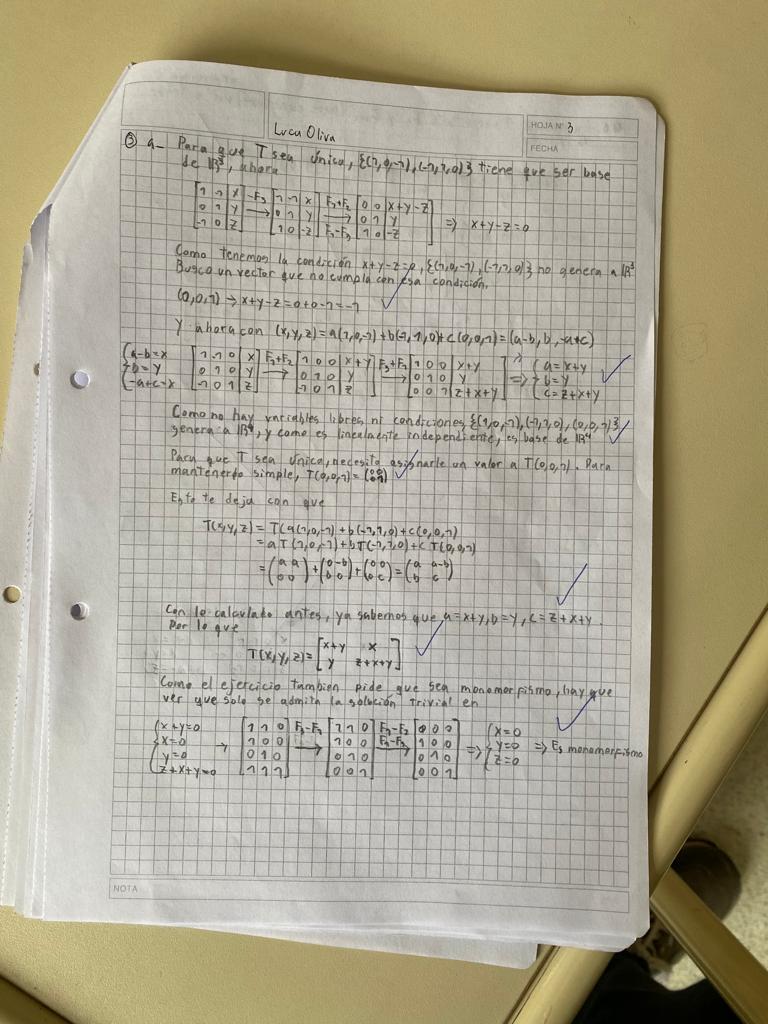 Luca Oliva
HOJA N° 3
FECHA
③ a- Para que T sea única, {(1,0,-1),(-1,1,0)} tiene que ser base
de ℝ³, ahora
[1 -1 x; 0 1 y; -1 0 z] -F₃→ [1 -1 x; 0 1 y; 1 0 -z] F₁+F₂, F₁-F₃→ [0 0 x+y-z; 0 1 y; 1 0 -z] => x+y-z=0
Como tenemos la condición x+y-z=0, {(1,0,-1),(-1,1,0)} no genera a ℝ³
Busco un vector que no cumpla con esa condición.
(0,0,1) → x+y-z=0+0-1=-1
Y ahora con (x,y,z)=a(1,0,-1)+b(-1,1,0)+c(0,0,1)=(a-b,b,-a+c)
{a-b=x; b=y; -a+c=x [1 -1 0 x; 0 1 0 y; -1 0 1 z] F₁+F₂→ [1 0 0 x+y; 0 1 0 y; -1 0 1 z] F₃+F₁→ [1 0 0 x+y; 0 1 0 y; 0 0 1 z+x+y] => {a=x+y; b=y; c=z+x+y
Como no hay variables libres ni condiciones {(1,0,-1),(-1,1,0),(0,0,1)}
genera a ℝ⁴, y como es linealmente independiente, es base de ℝ⁴
Para que T sea única, necesito asignarle un valor a T(0,0,1). Para
mantenerlo simple, T(0,0,1)=(0 0; 0 1)
Esto te deja con que
T(x,y,z)=T(a(1,0,-1)+b(-1,1,0)+c(0,0,1)
=aT(1,0,-1)+bT(-1,1,0)+cT(0,0,1)
=(a a; 0 0)+(0 -b; b 0)+(0 0; 0 c)=(a a-b; b c)
Con lo calculado antes, ya sabemos que a=x+y, b=y, c=z+x+y.
Por lo que
T(x,y,z)=[x+y x; y z+x+y]
Como el ejercicio tambien pide que sea monomorfismo, hay que
ver que solo se admita la solución trivial en
{x+y=0; x=0; y=0; z+x+y=0 → [1 1 0; 1 0 0; 0 1 0; 1 1 1] F₄-F₁→ [1 1 0; 1 0 0; 0 1 0; 0 0 1] F₁-F₂, F₁-F₃→ [0 0 0; 1 0 0; 0 1 0; 0 0 1] => {x=0; y=0; z=0 => Es monomorfismo
NOTA